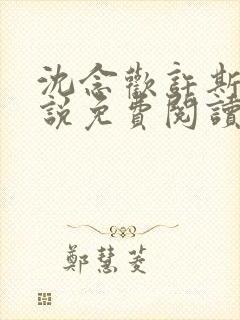 沈念歡許斯
說免費閱讀
鄭慧菱